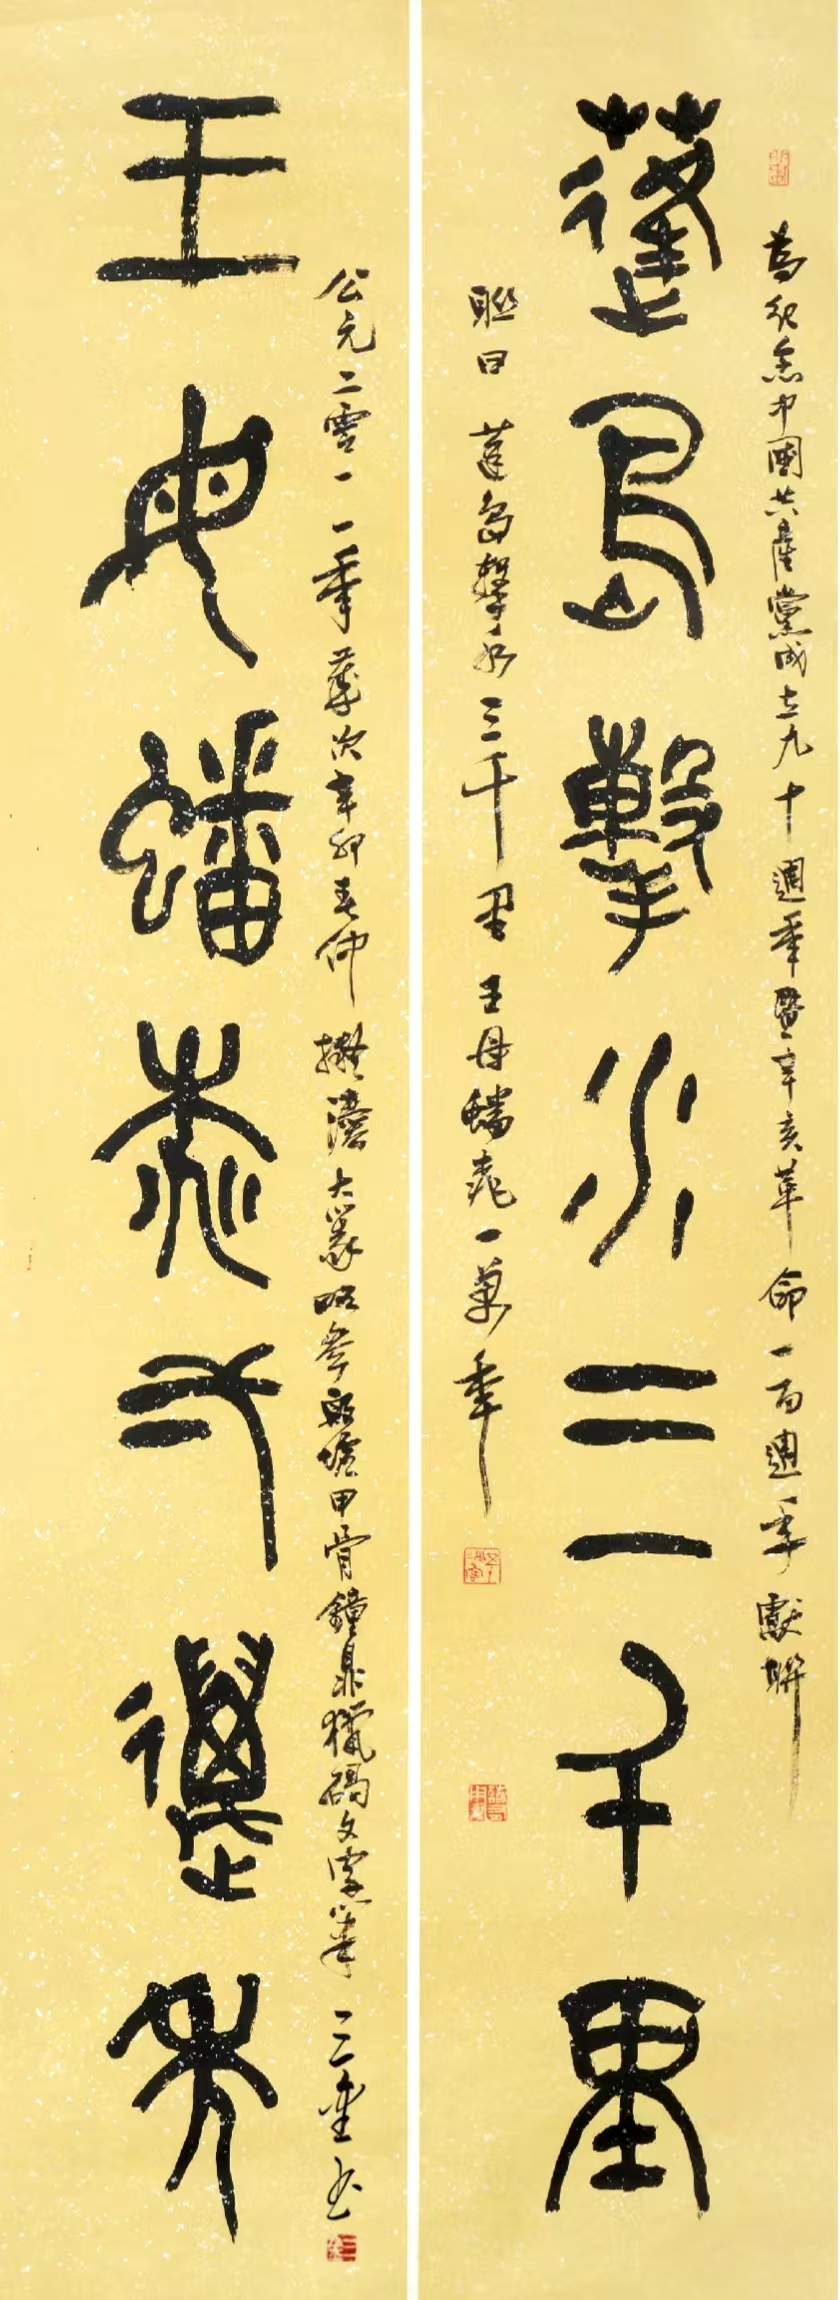 為紀念中國共產黨成立九十週年暨辛亥革命一百週年獻聯
蓬島擊水三千里
聯曰 蓬島擊水三千里 王母蟠桃一萬年
公元二零一一年歲次辛卯春仲 擬灋大篆略參殷墟甲骨鐘鼎獵碣文字筆 三 書
王母蟠桃一萬年